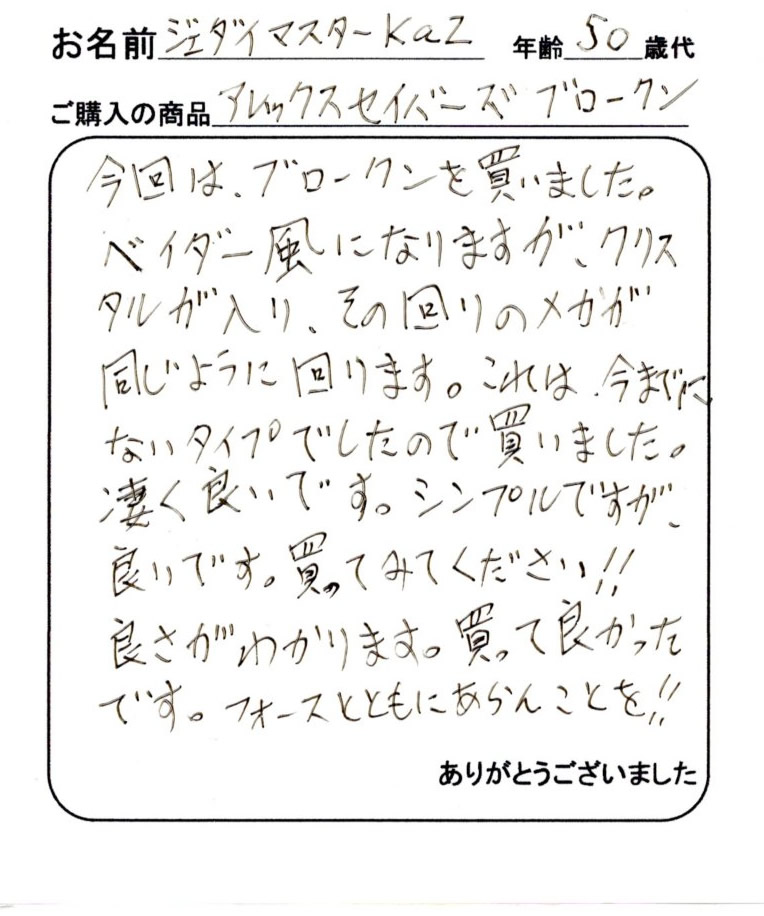 お名前 ジェダイマスターKaz 年齢 50 歳代
ご購入の商品 アレックスセイバーズ ブロークン
今回は、ブロークンを買いました。
ベイダー風になりますが、クリス
タルが入り、その回りのメカが
同じように回ります。これは、今までに
ないタイプでしたので買いました。
凄く良いです。シンプルですが、
良いです。買ってみてください!!
良さがわかります。買って良かった
です。フォースとともにあらんことを!!
ありがとうございました